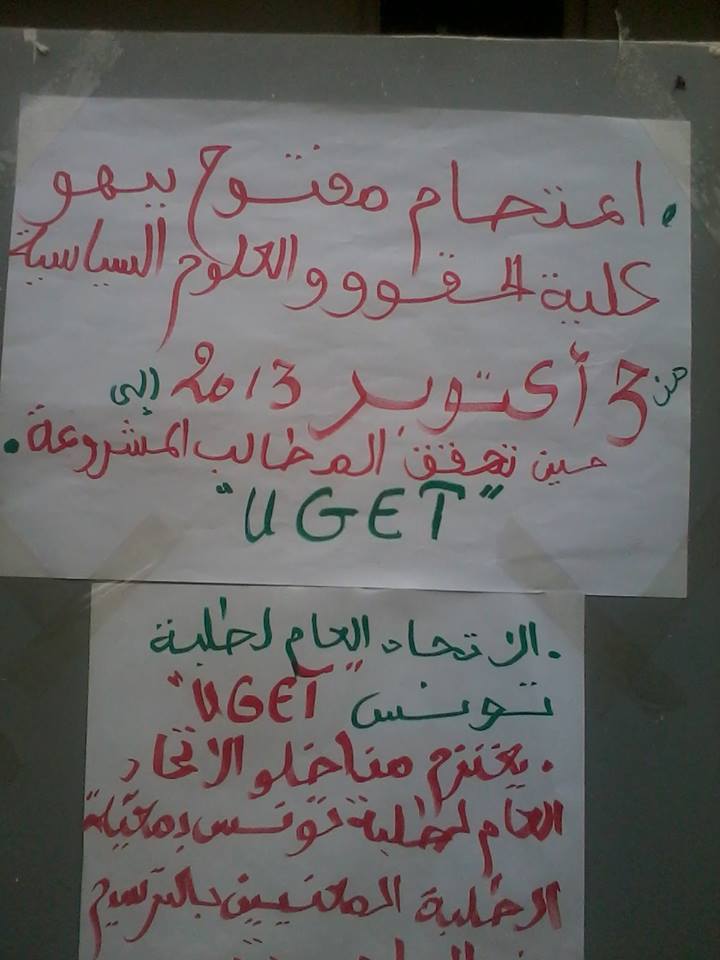 . اعتصام مفتوح ببهو
كلية الحقوق والعلوم السياسية
من 3 أكتوبر 2013 إلى
حين تحقق المطالب المشروعة.
"UGET"
. الاتحاد العام لطلبة
تونس "UGET"
. يعتزم مناضلو الاتحاد
العام لطلبة تونس بمعيّة
الطلبة المعنيين بالترسيم